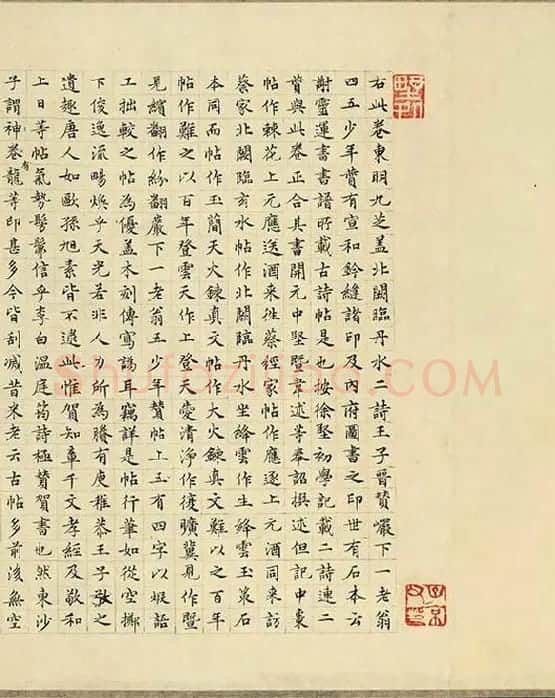 右此卷東明九芝盖北闕臨丹水二詩王子晉贊巖下一老翁
四五少年贊有宣和鈐縫諸印及內府圖書之印世有石本云
謝靈運書書譜所載古詩帖是也按徐堅初學記載二詩連二
贊與此卷正合其書開元中堅暨韋述等奉詔撰述但記中棗
帖作棘花上元應送酒來徃蔡經家帖作應逐上元酒同來訪
蔡家北闕臨亥水帖作北闕臨丹水坐絳雲作生絳雲玉策石
本同而帖作玉簡天火鍊真文帖作大火鍊真文難以之百年
帖作難之以百年登雲天作上登天愛清淨作復曠冀見作暨
見繽翻作紛翻巖下一老翁五少年贊帖上五有四字以蝦詰
工拙較之帖為優盖本刻傳寫譌耳竊詳是帖行筆如從空擲
下俊逸流暢煥乎天光若非人力所為賸有庾稚恭王子敬之
遺趣唐人如歐孫旭素皆不遺此惟賀知章千文孝經及敬和
上日等帖氣勢髣髴信乎李白溫庭筠詩極贊賀書也然東沙
子謂神卷有龍等印甚多今皆刮滅昔米老云古帖多前後無空
Shufaziliao.COM